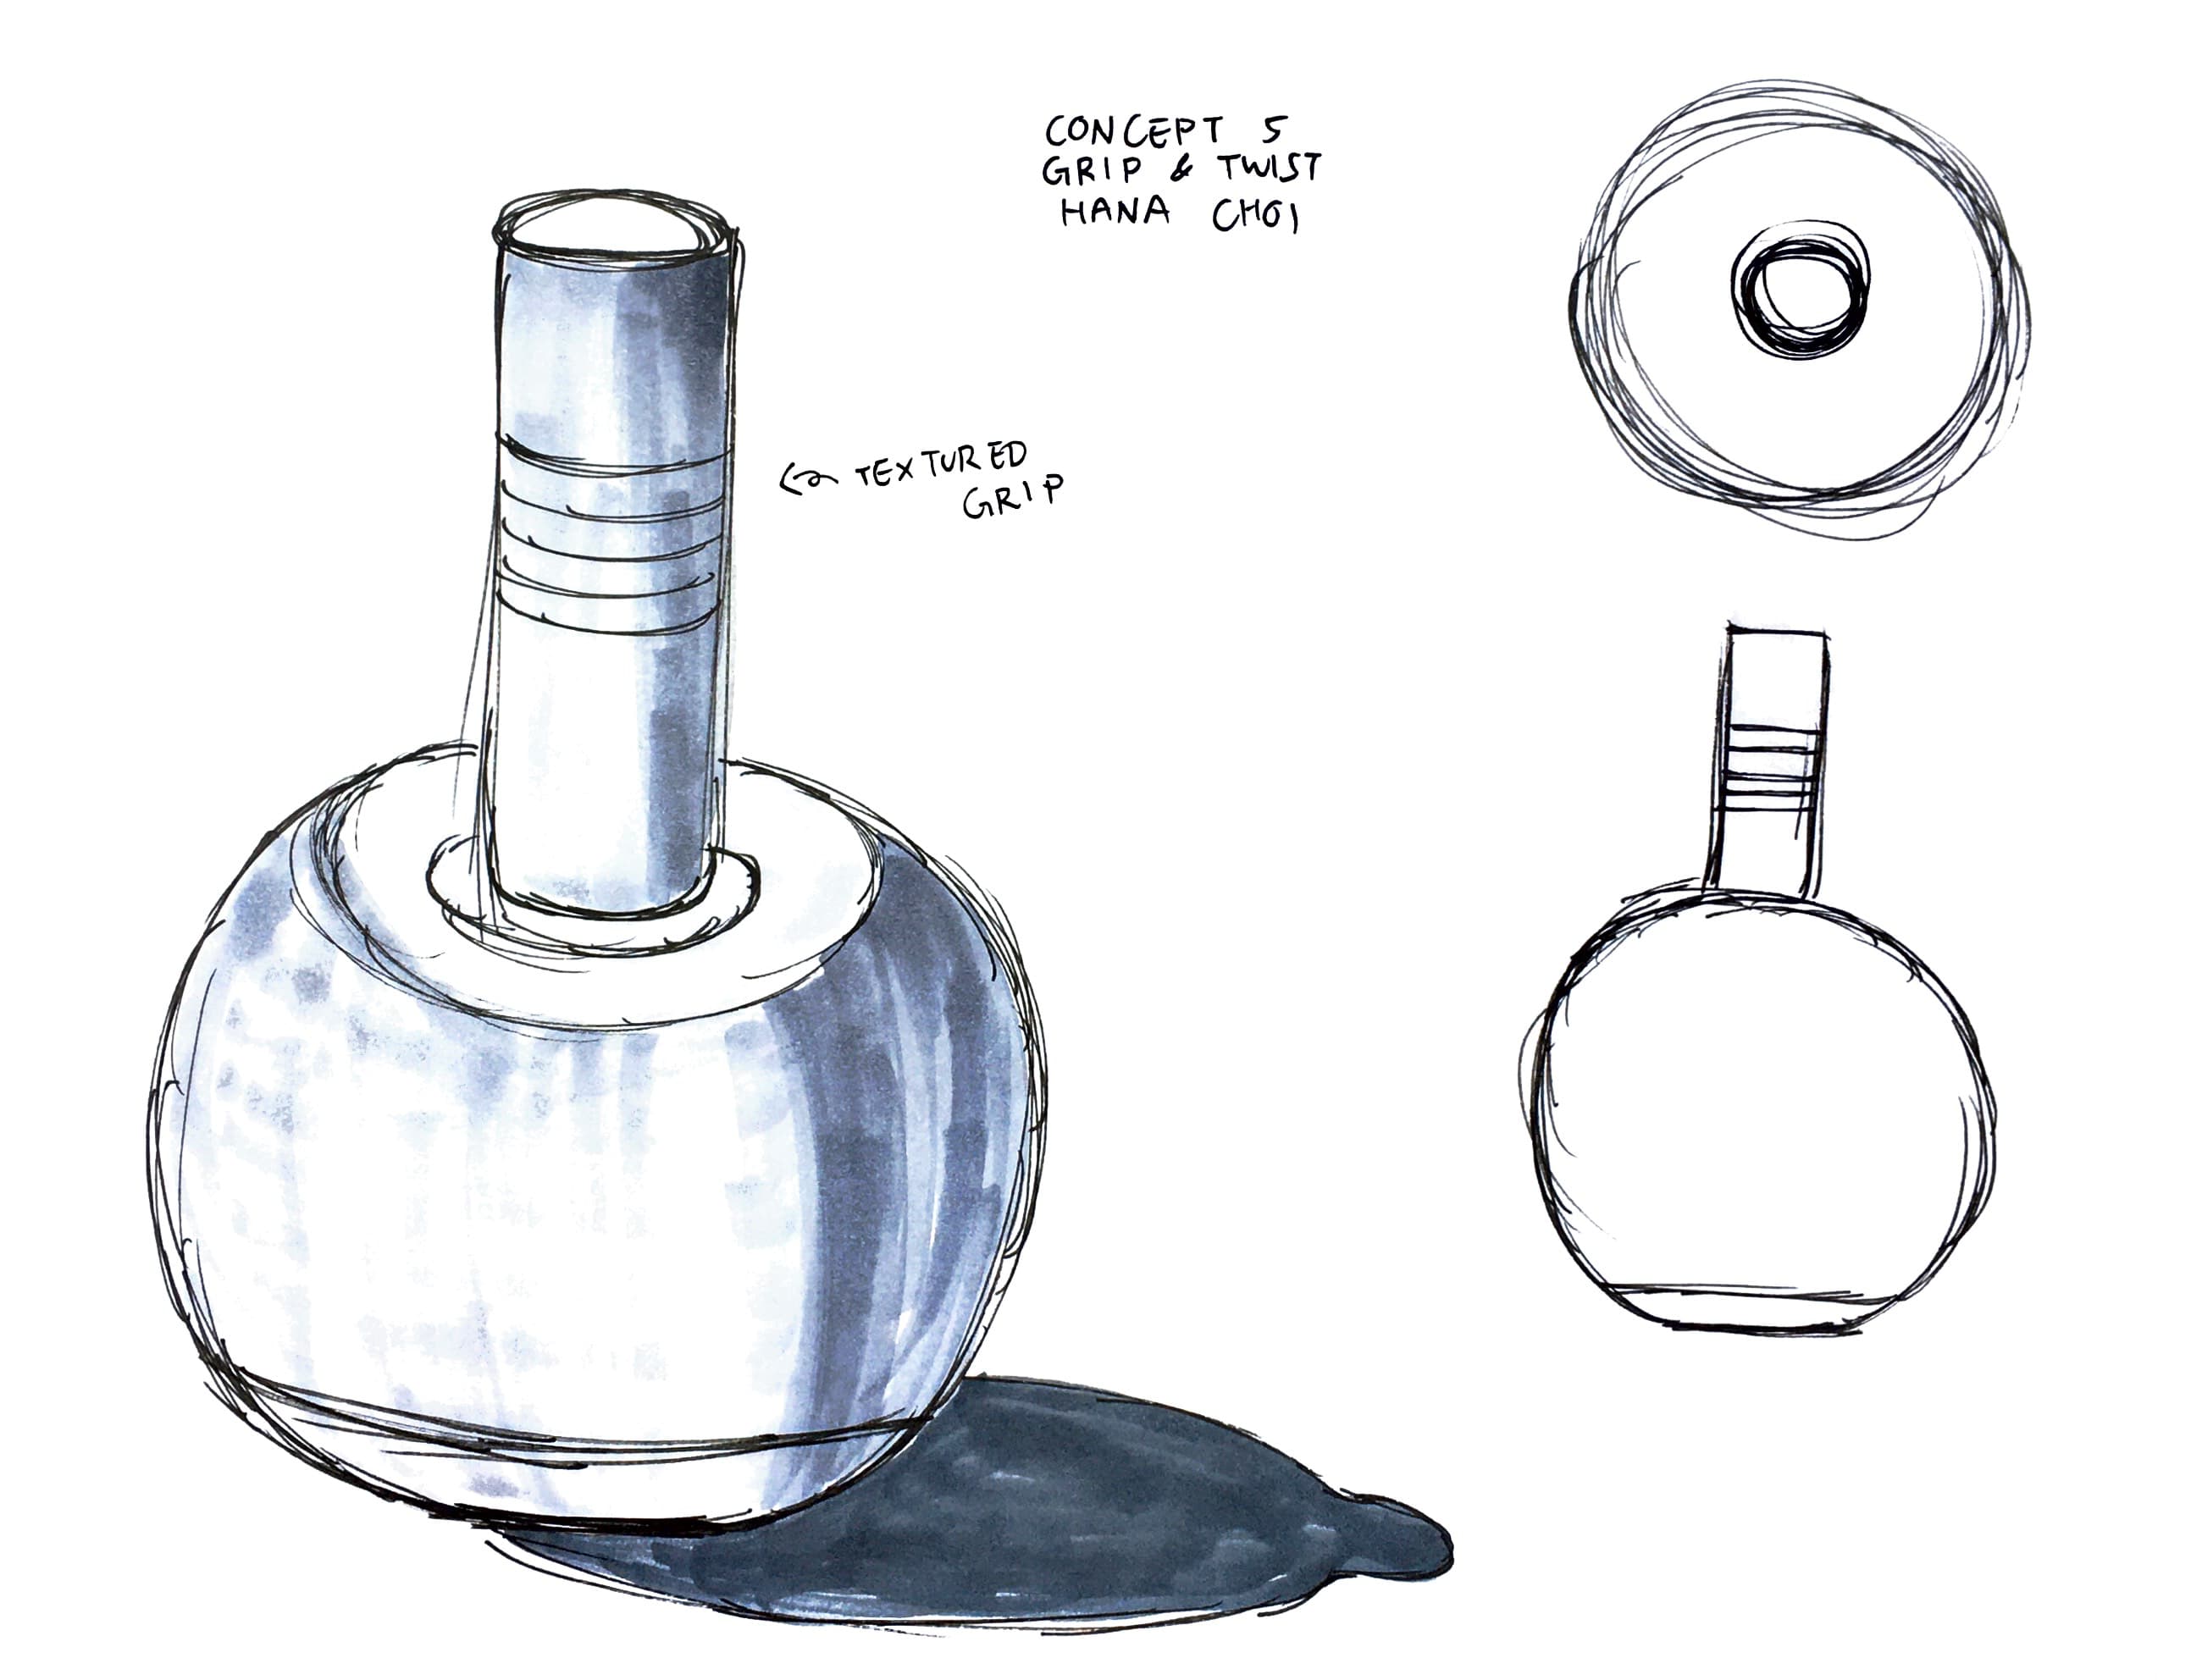 CONCEPT 5
GRIP & TWIST
HANA CHOI
TEXTURED
GRIP